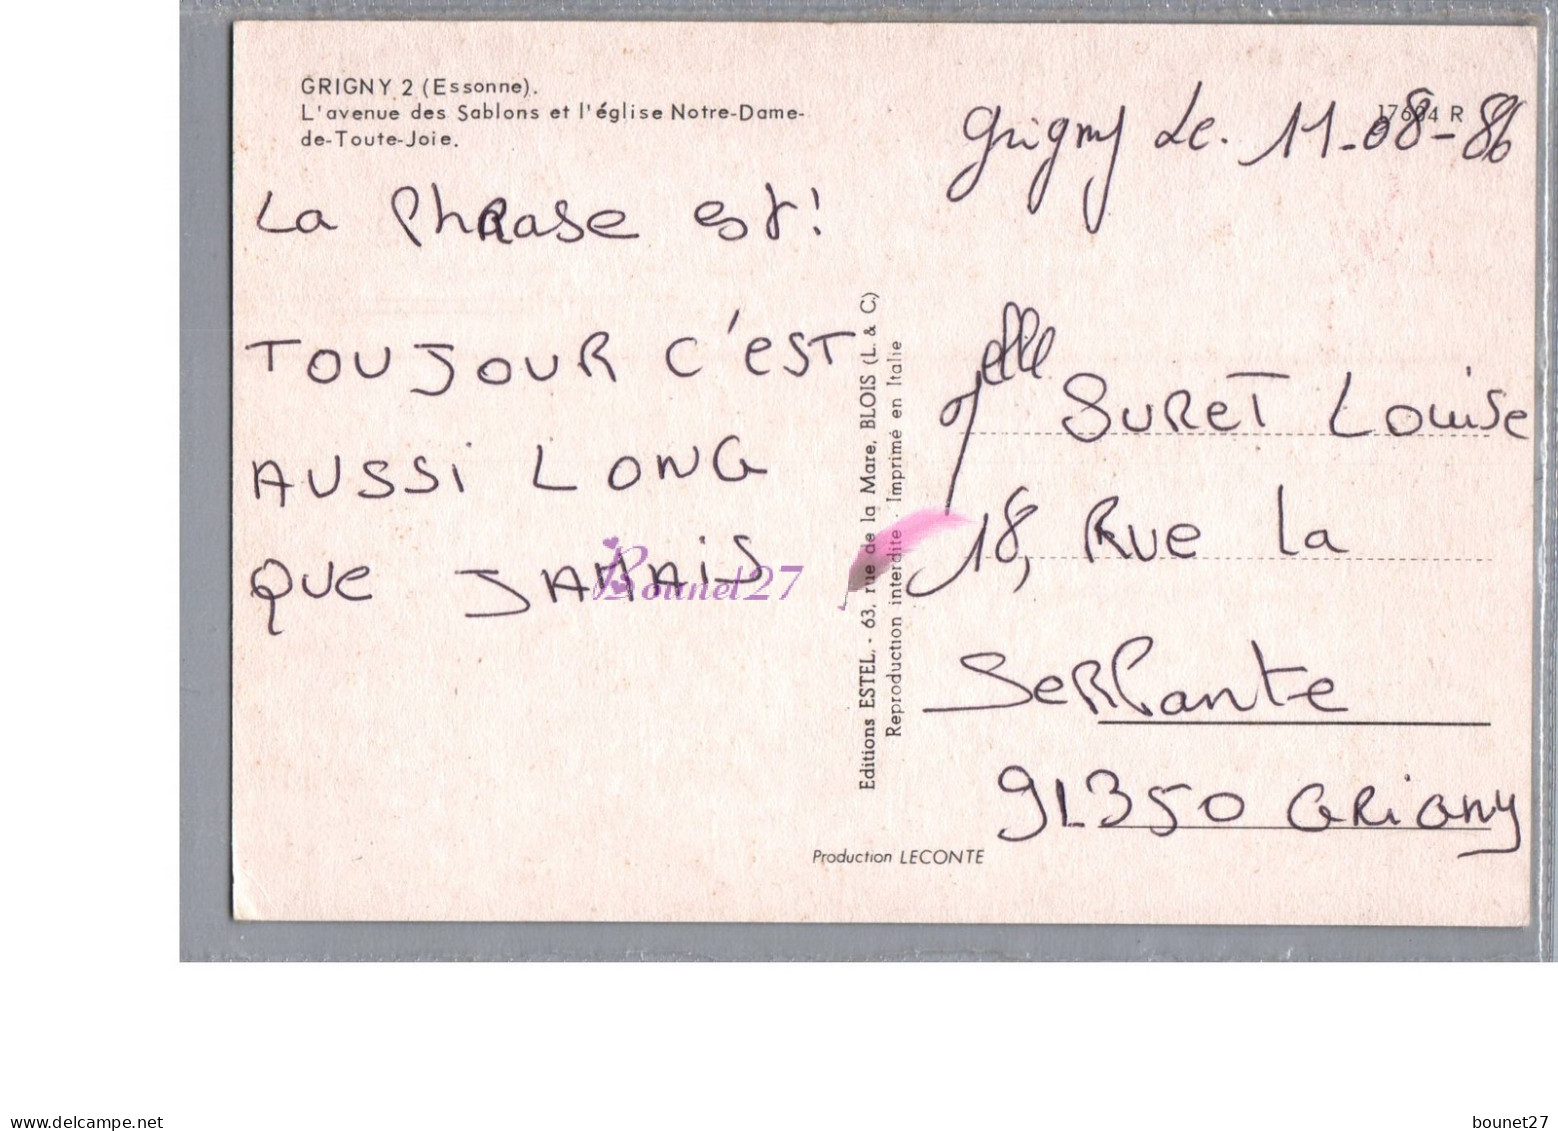 GRIGNY 2 (Essonne).
L'avenue des Sablons et l'église Notre-Dame-
de-Toute-Joie.
17604 R
Grigny Le. 11-08-86
La Phrase est!
TOUJOUR C'EST
AUSSI LONG
QUE JAMAIS
Editions ESTEL, - 63, rue de la Mare, BLOIS (L. & C.)
Reproduction interdite - Imprimé en Italie
SURET Louise
18, Rue la
SERPante
91350 GRIGNY
Production LECONTE
Bounet27
delcampe.net
bounet27